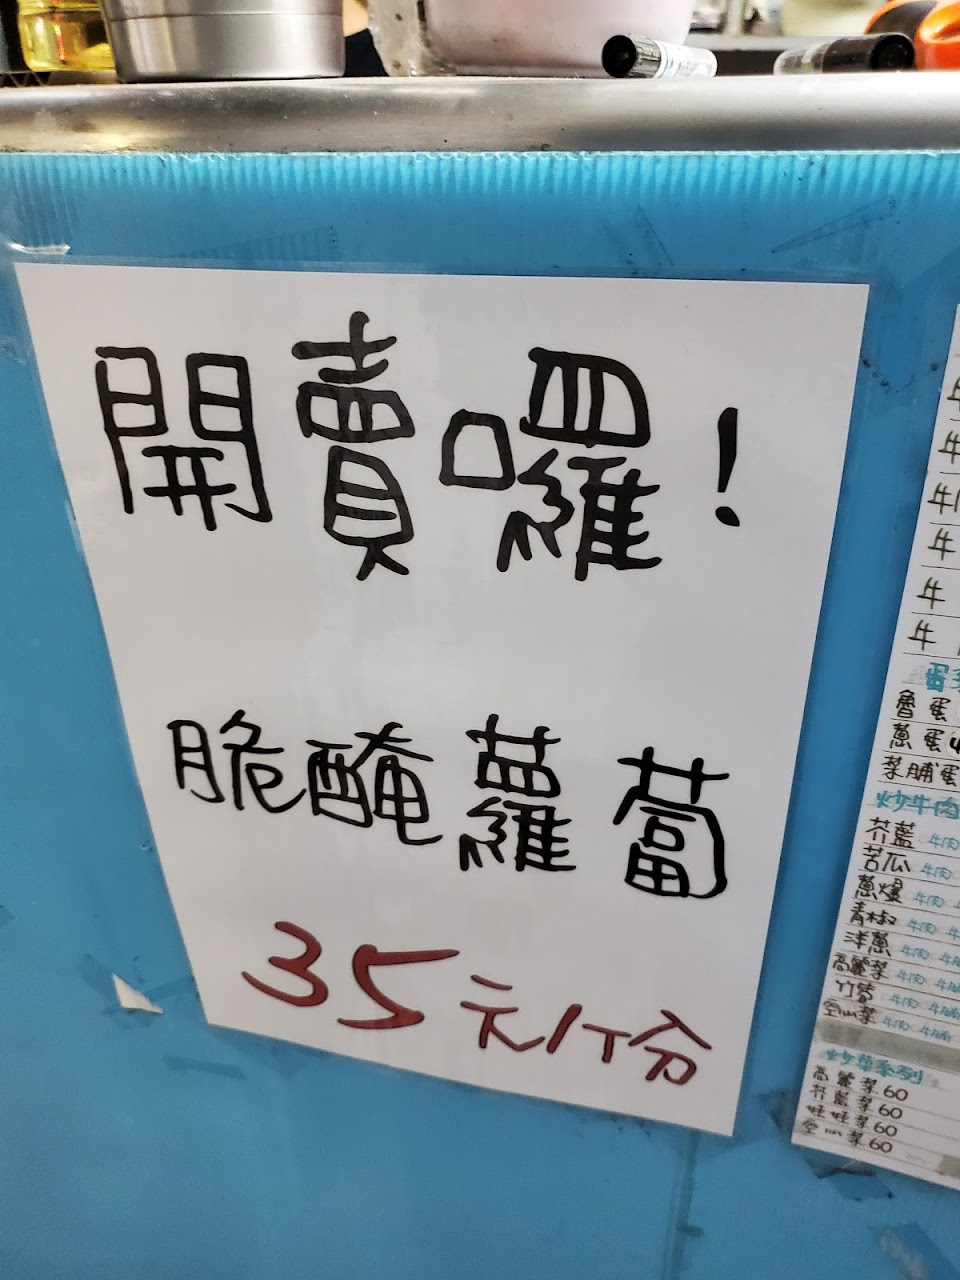 開賣囉!
脆醃蘿蔔
35元/1份
牛
牛
牛
牛
牛
牛
蛋
魯蛋
蔥蛋
菜脯蛋
炒牛肉
芥藍 牛肉
苦瓜 牛肉
蔥爆 牛肉
青椒 牛肉
洋蔥 牛肉
高麗菜 牛肉
竹筍 牛肉
空心菜 牛肉
炒菜系列
高麗菜60
芥藍菜60
娃娃菜60
空心菜60